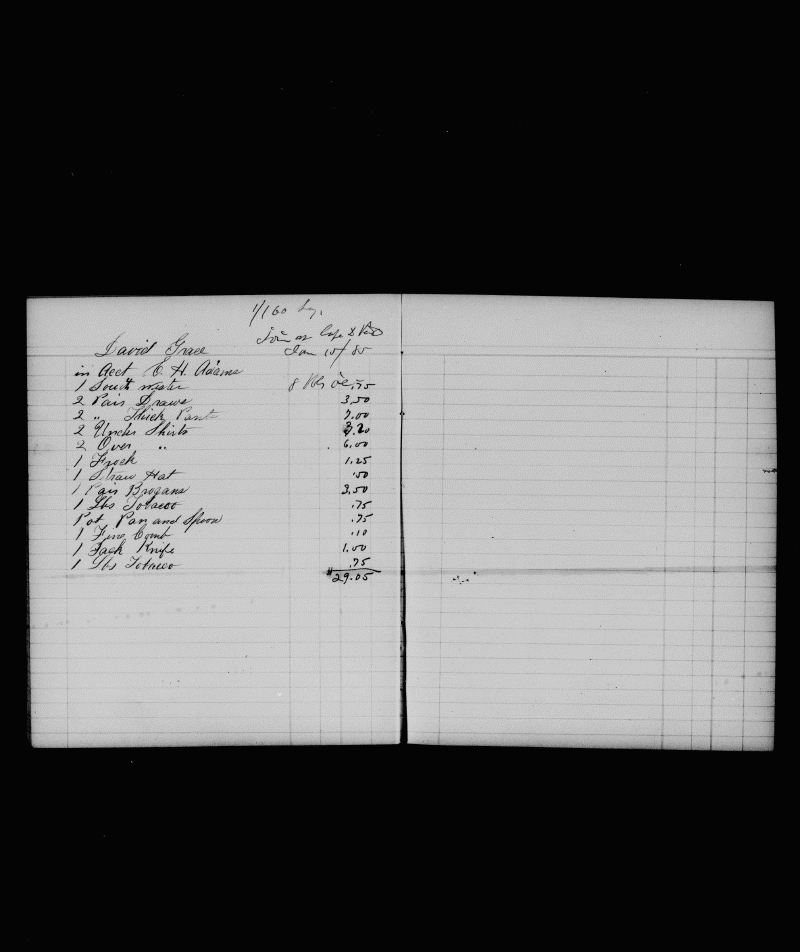 1/160 Lay.
David Grace
Join at Cape de Verd
Jan 15/85
in Acct C. H. Adams
1 South wester .75
2 Pair Draws 3.50
2 " Thick Pants 7.00
2 Under Shirts 3.20
2 Over " 6.00
1 Frock 1.25
1 Straw Hat .50
1 Pair Brogans 3.50
1 Lbs Tobacco .75
Pot Pan and Spoon .75
1 Fine Comb .10
1 Jack Knife 1.00
1 Lbs Tobacco .75
29.05